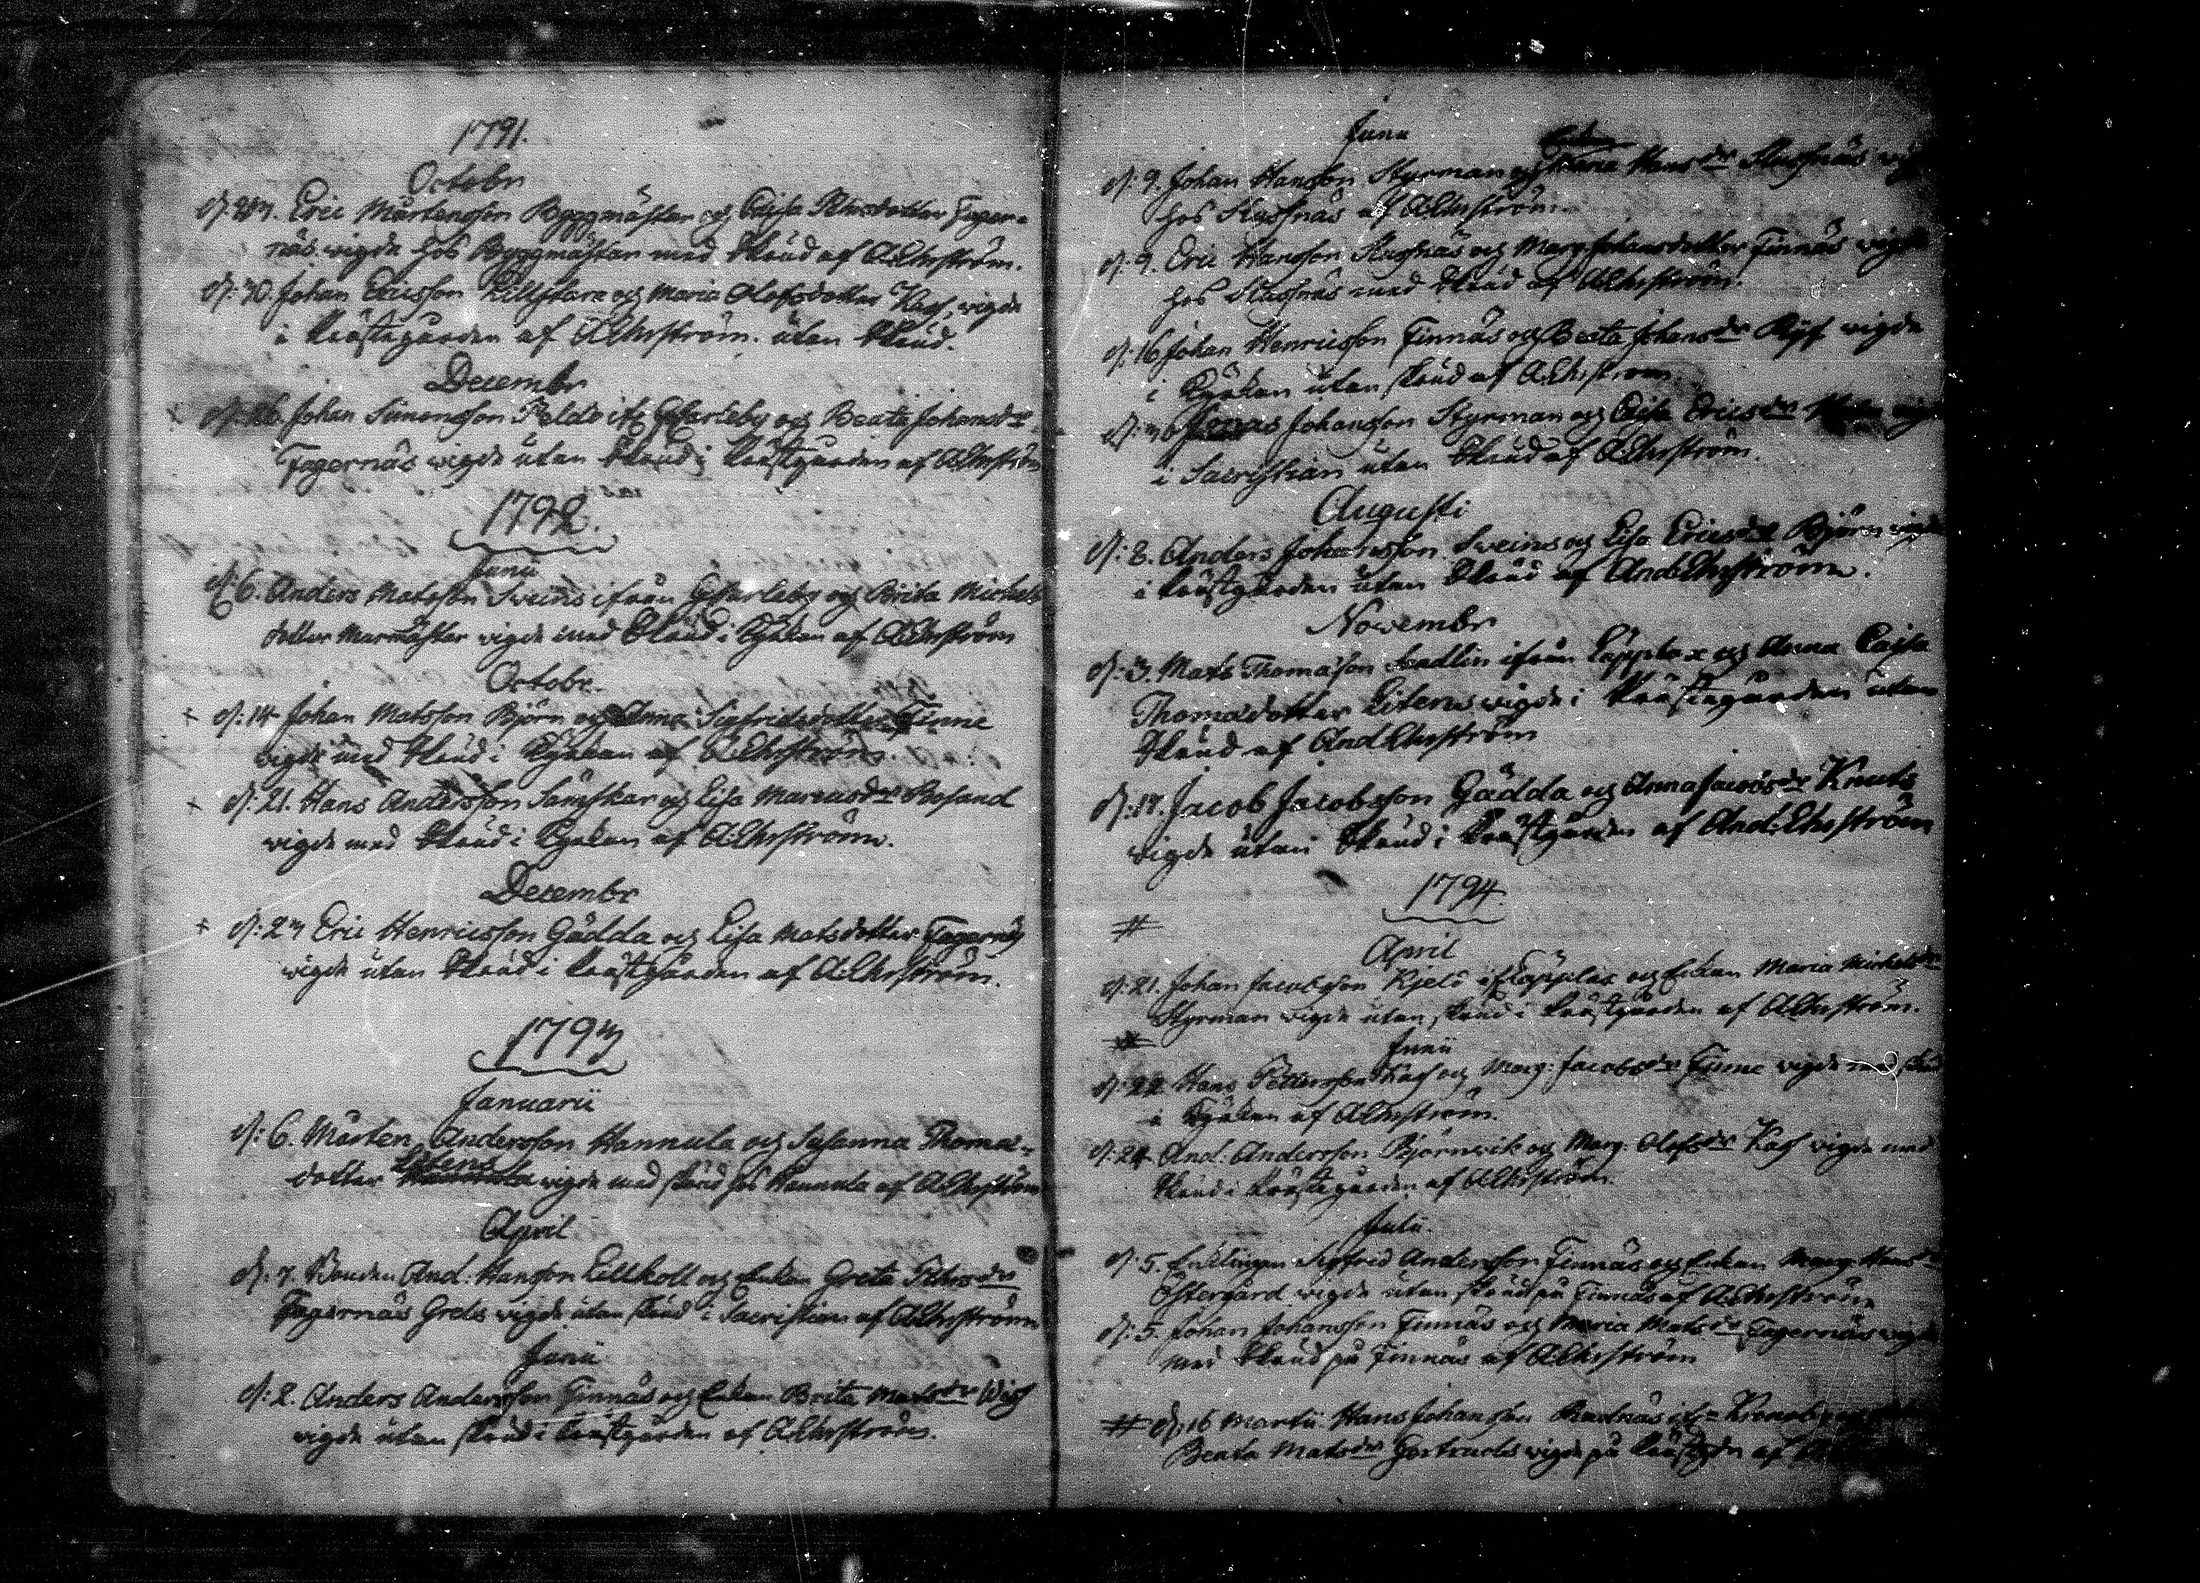 1791.
Octobr
d: 23. Eric Mårtensson Byggmästar og Cajsa Nilsdotter Fager=
näs wigde hos Byggmästar med skrud af A:Ehrström.
d: 30. Johan Ericsson Lillskare og Maria Olofsdotter Kass, wigde
i Prästegården af A:Ehrström. utan skrud.
Decembr
d: 26. Johan Simonsson Peldo ifr Esserleby og Beata Johansdr
Fagernäs wigde utan skrud i Prästgården af A:Ehrström
1792.
Junii
d: 6. Anders Matsson Sveins ifrån Esserleby og Brita Michels
dotter Murmästar wigde med skrud i Kyrkan af A:Ehrström
Octobr.
d: 14 Johan Matsson Björn og Anna Sigfridsdotter Finne
wigde med skrud i Kyrkan af A:Ehrström.
d: 21. Hans Andersson Sämskar og Lisa Marcusdr Rosand
wigde med skrud i Kyrkan af A:Ehrström.
Decembr
d: 23 Eric Henricsson Gädda og Lisa Matsdotter Fagernäs
wigde utan skrud i Prästgården af A:Ehrström.
1793
Januarii
d: 6. Mårten Andersson Hannula og Susanna Thomas=
Litens
dotter Hannula wigde med skrud hos Hannula af A:Ehrström
April
d: 7. Bonden And: Hansson Lillkull og Enkan Greta Pehrsdr
Fagernäs Grels wigde utan skrud i Sacristian af A:Ehrström
Junii
d: 2. Anders Andersson Finnäs og Enkan Brita Matsdr Wiss
wigde utan skrud i Prästgården af A:Ehrström.
Junii
d: 9. Johan Hansson Styrman og Hansdr Slussnäs
hos Slussnäs af A:Ehrström.
d: 9. Eric Hansson Slussnäs og Marg Johansdotter Finnäs wigde
hos Slussnäs med skrud af A:Ehrström.
d: 16 Johan Henricsson Finnäs og Beata Johansdr Ryss wigde
i Kyrkan utan skrud af A:Ehrström.
d: 30 Johansson Styrman og Cajsa Ericsdr
i Sacristian utan skrud af A:Ehrström.
Augusti
d: 2. Anders Johansson Sweins og Lisa Ericsdr Björn wigde
i Prästgården utan skrud af And:Ehrström.
Novembr
d: 3. Mats Thomasson Sandlin ifrån Läpplax og Anna Cajsa
Thomasdotter Litens wigde i Prästegården utan
skrud af And:Ehrström
d: 17. Jacob Jacobsson Gädda og Anna Jacobsdr Knuts
wigde utan skrud i Prästgården af And:Ehrström
1794.
#
April
d: 21. Johan Jacobsson Kjeld if Läpplax og Enkan Maria Michelsdr
Styrman wigde utan skrud i Prästgården af A:Ehrström.
#
Junii
d: 22. Hans Pettersson Kass og Marg: Jacobsdr Finne wigde med skrud
i Kyrkan af A:Ehrström.
d: 24. And: Andersson Björnwik og Marg: Olofsdr Kass wigde med
skrud i Prästegården af A:Ehrström.
Julii.
d: 5. Enklingen Sigfrid Andersson Finnäs og Enkan Marg: Hansdr
Östergård wigde utan skrud på Finnäs af A:Ehrström
d: 5. Johan Johansson Finnäs og Maria Matsdr Fagernäs wigde
med skrud på Finnäs af A:Ehrström
# d: 16 Martii Hans Johansson Rudnäs if= Kronoby
Beata Matsdr Gertruds wigde på Prästgdn af